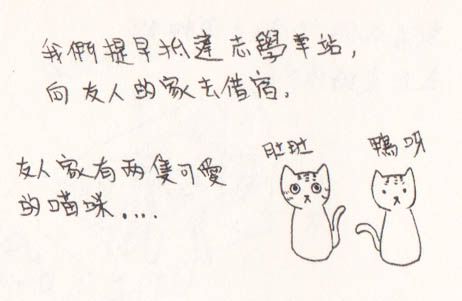 我們提早抵達志學車站,
向友人的家去借宿.
友人家有兩隻可愛
的喵咪....
肚肚
鴨呀